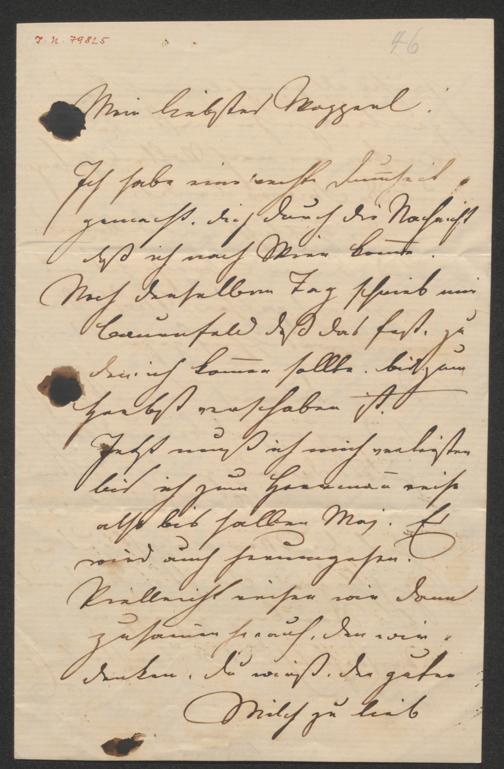 I. N. 79825
46
Mein liebster Mopperl!
Ich habe eine rechte Dummheit
gemacht, dich durch die Nachricht
daß ich nach Wien komme.
Noch denselben Tag schrieb mir
Bauernfeld daß das Fest, zu
dem ich kommen sollte, bis zum
Herbst verschoben ist.
Jetzt muß ich mich
bis ich zum Herrmann reise
also bis halben Maj. Er
wird auch herumgehen.
Vielleicht reisen wir dann
zusammen, den wir
denken, du wirst, der guten
Milch zu lieb